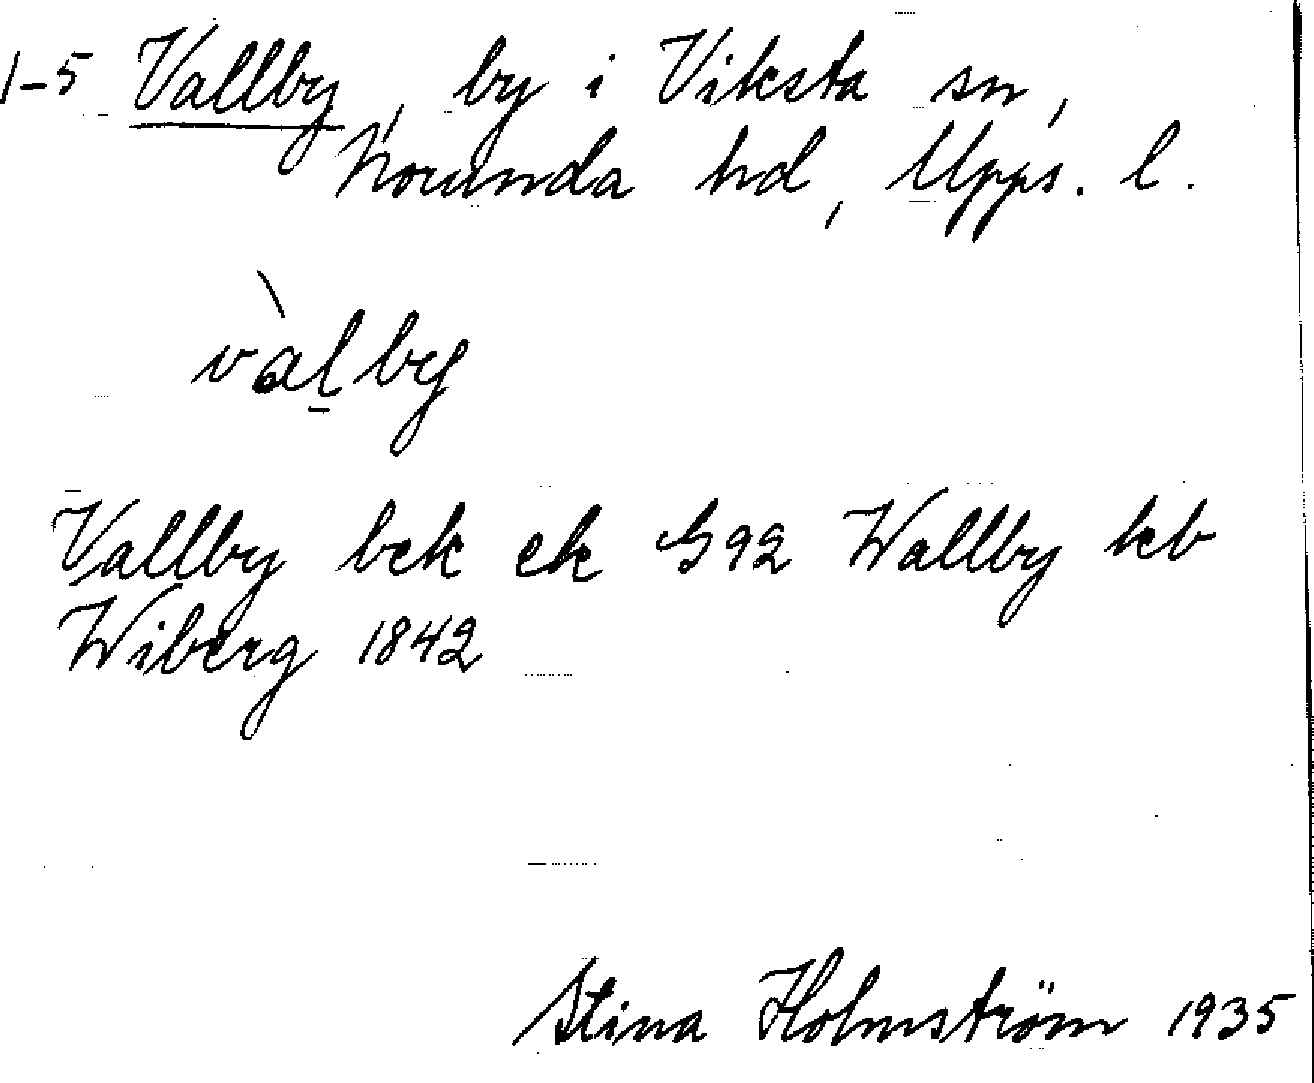 1-5 Vallby, by i Viksta sn,
Norunda hd, Upps. l.
v̀alby
Vallby bek ek G92 Wallby kb
Wiberg 1842
Stina Holmström 1935